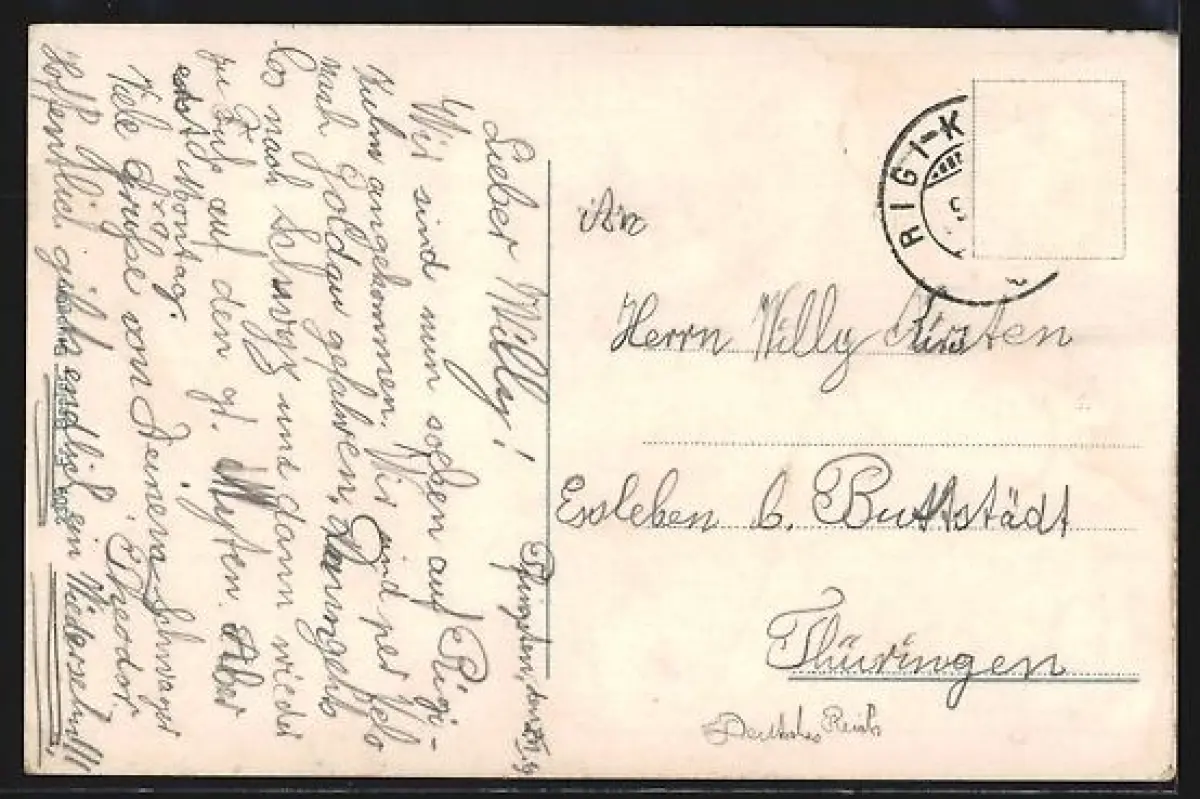 Pfingsten, den
Lieber Willy!
Wir sind nun soeben auf Rigi-
Kulm angekommen. Wir sind per Velo
nach Goldau gefahren. Dann gehts
los nach Schwyz und dann wieder
zu Fuß auf den gr. Myten. Aber
erst Montag.
Viele Grüße von Deinem Schwager
Theodor.
Hoffentlich gibt's endlich ein Wiedersehn!!!
RIGI-K
An
Herrn Willy Kürsten
Essleben b. Buttstädt
Thüringen
Deutsches Reich